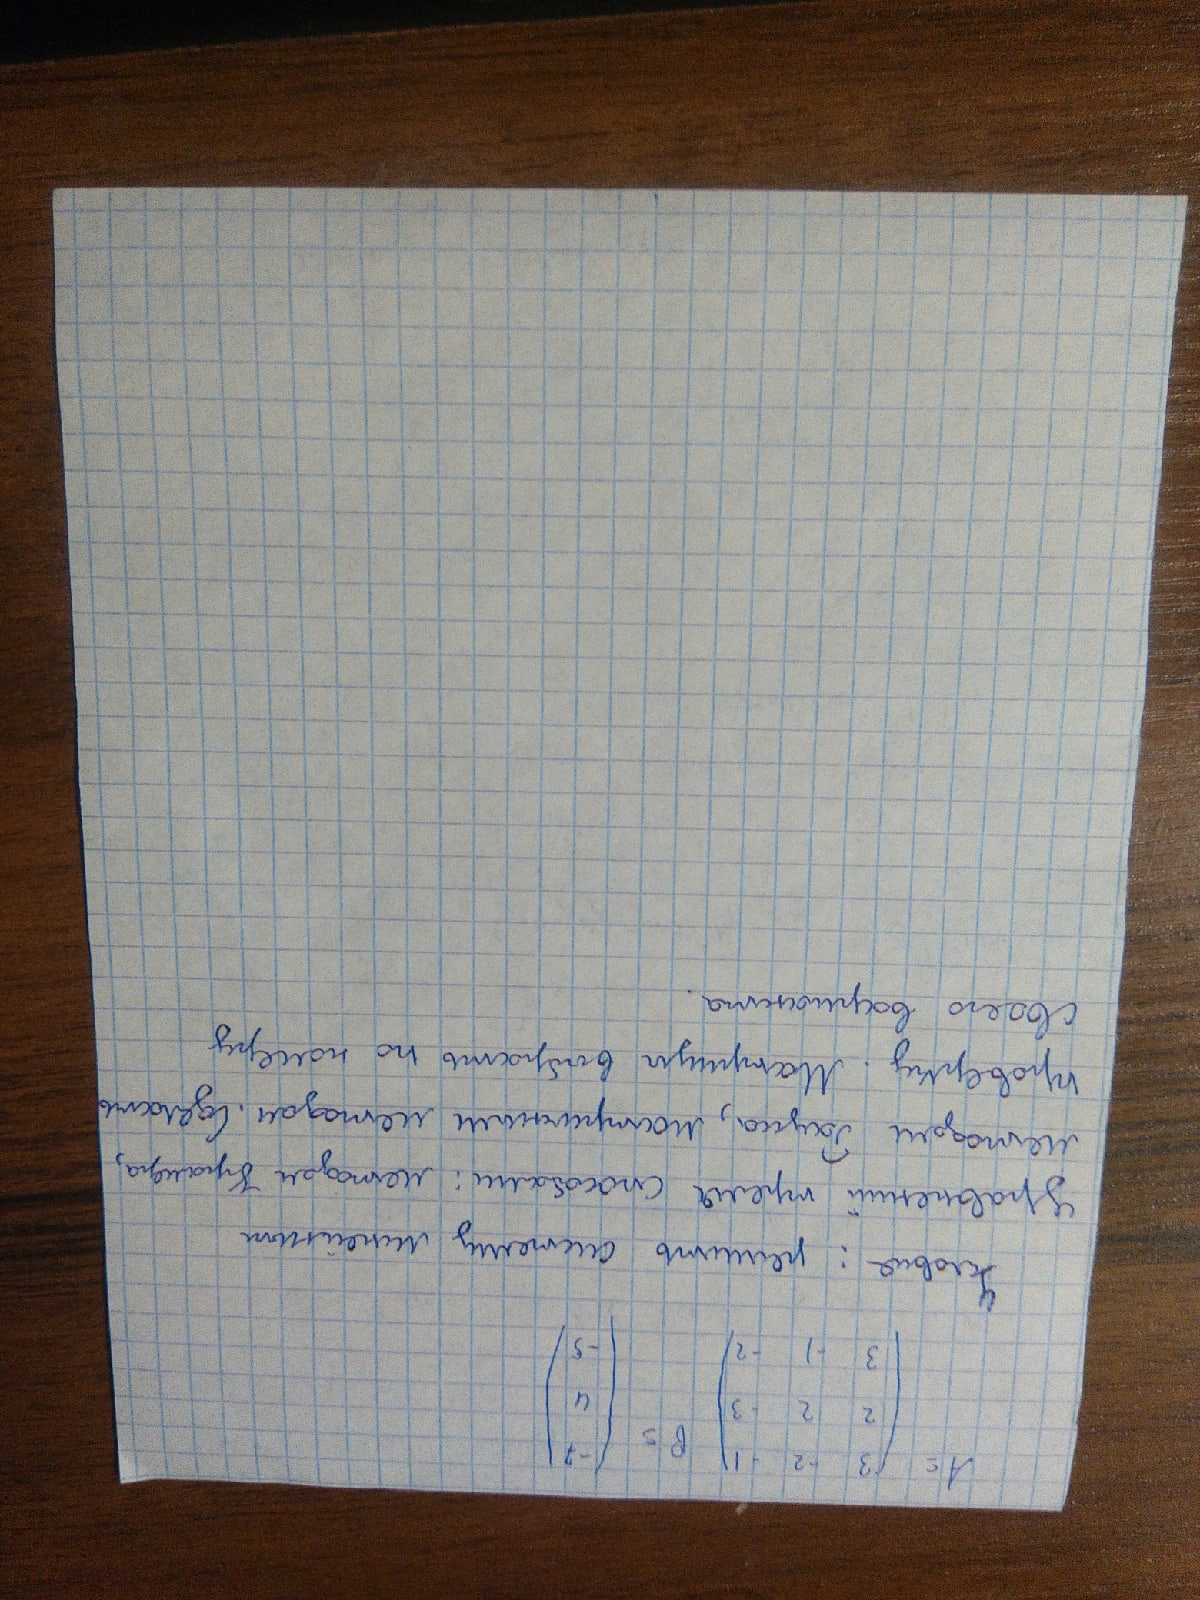 A = (3 -2 -1) B = (-7)
(2 2 -3) (4)
(3 -1 -2) (-5)
Условие: решить систему линейных
уравнений тремя способами: методом Крамера,
методом Гаусса, матричным методом. Сделать
проверку. Матрицы выбрать по номеру
своего варианта.